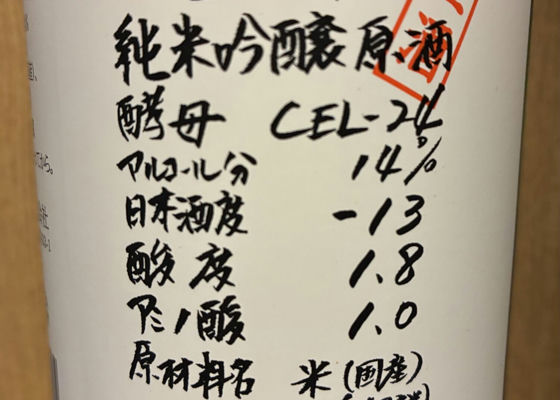 純米吟醸原酒
酵母 CEL-24
アルコール分 14%
日本酒度 -13
酸度 1.8
アミノ酸 1.0
原材料名 米(国産)